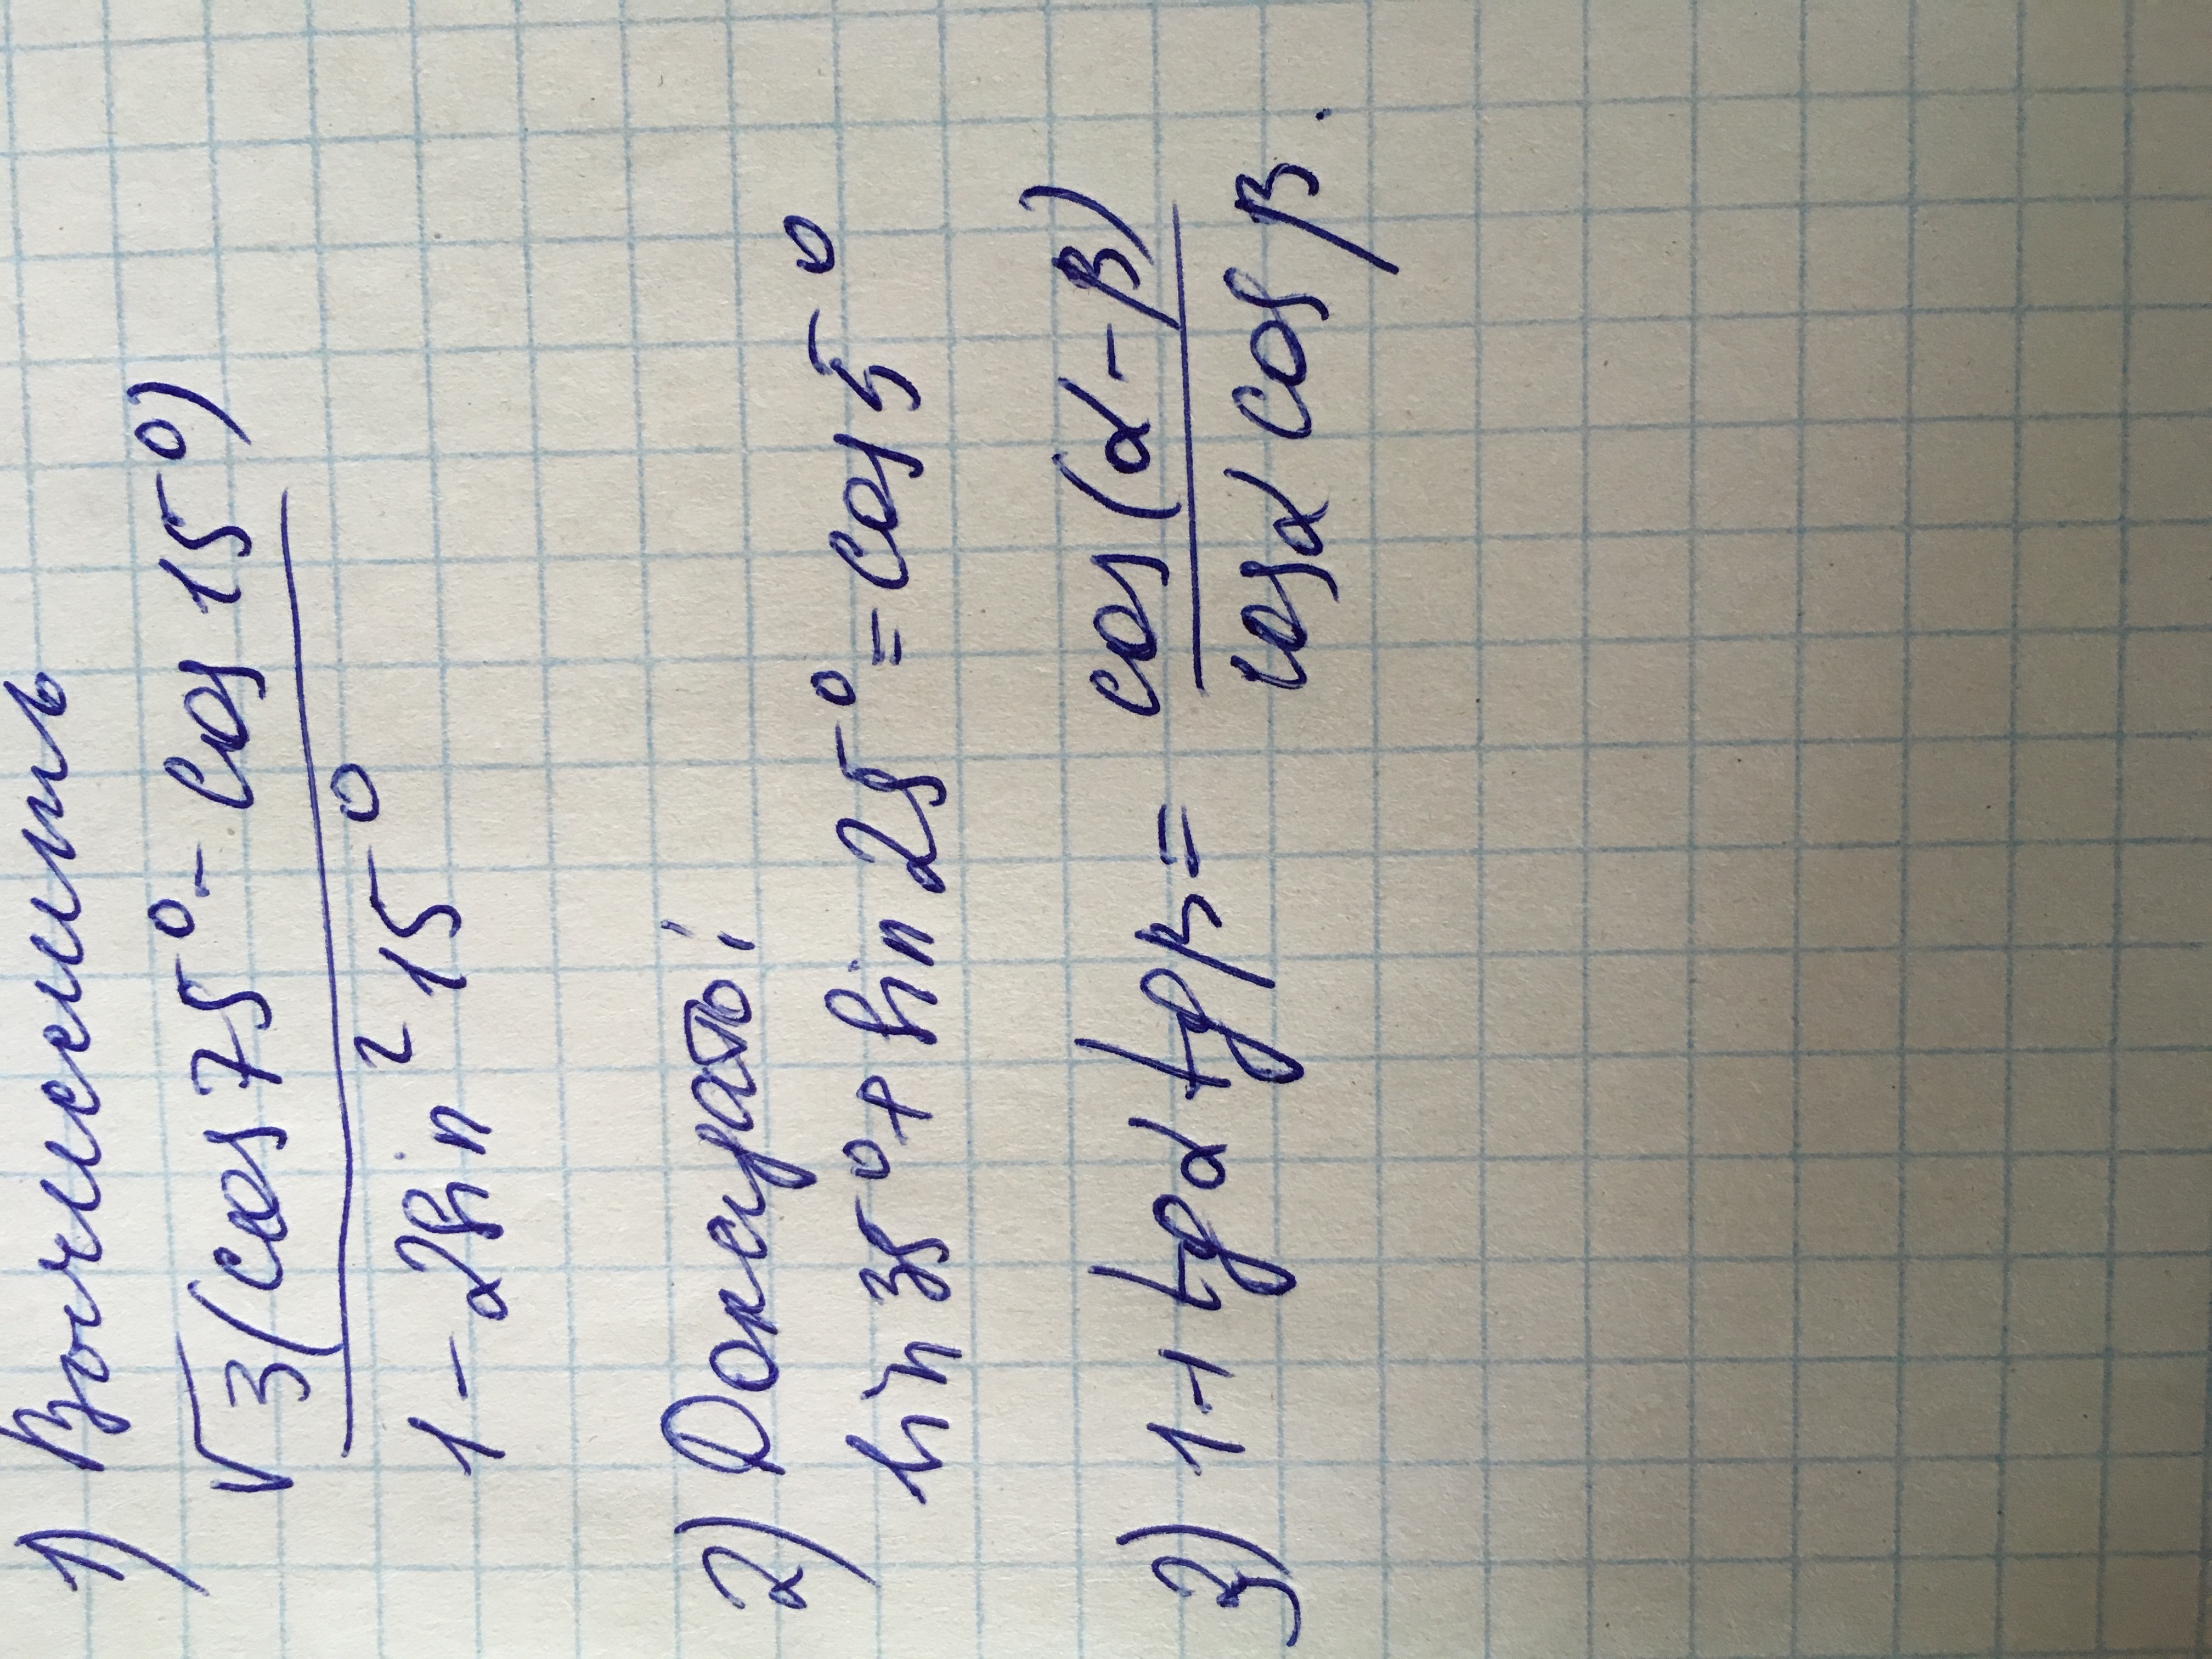 1) Вычислить
√3(cos 75° - cos 15°)
1 - 2sin² 15°
2) Доказать:
sin 35° + sin 25° = cos 5°
3) 1 + tgα tgβ = cos(α-β)
cosα cosβ.